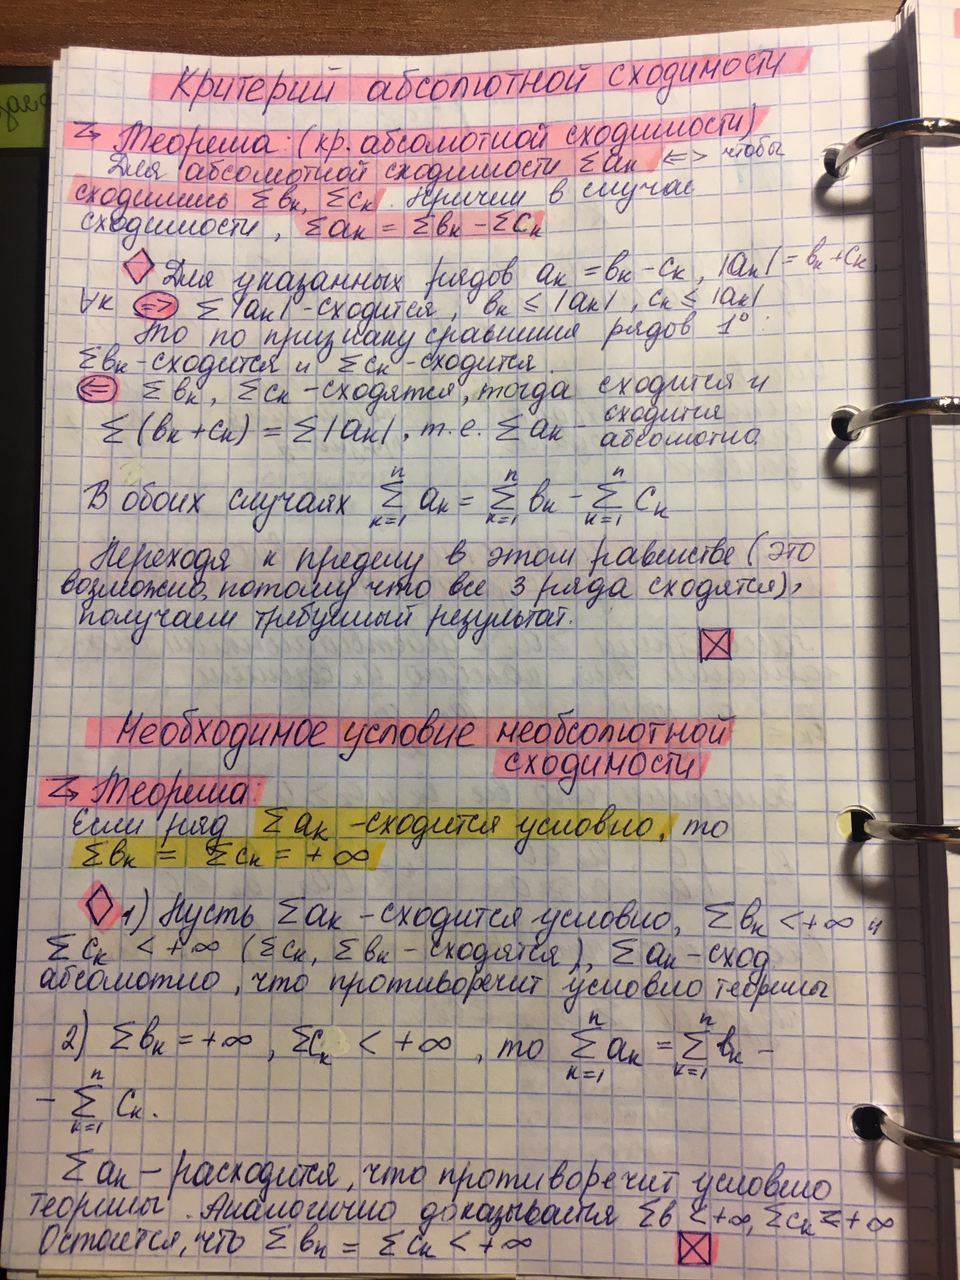 Критерий абсолютной сходимости
Теорема: (кр. абсолютной сходимости)
Для абсолютной сходимости Σaₖ <=> чтобы
сходились Σвₖ, Σcₖ. Причем в случае
сходимости, Σaₖ = Σвₖ - Σcₖ
Для указанных рядов aₖ = вₖ - cₖ, |aₖ| = вₖ + cₖ,
∀к => Σ|aₖ| - сходится, вₖ ≤ |aₖ|, cₖ ≤ |aₖ|
То по признаку сравнения рядов 1°:
Σвₖ - сходится и Σcₖ - сходится.
<= Σвₖ, Σcₖ - сходятся, тогда сходится и
Σ(вₖ + cₖ) = Σ|aₖ|, т.е. Σaₖ - сходится
абсолютно.
В обоих случаях Σⁿₖ₌₁ aₖ = Σⁿₖ₌₁ вₖ - Σⁿₖ₌₁ cₖ
Переходя к пределу в этом равенстве (это
возможно, потому что все 3 ряда сходятся),
получаем требуемый результат.
Необходимое условие необсолютной
сходимости
Теорема:
Если ряд Σaₖ - сходится условно, то
Σвₖ = Σcₖ = +∞
1) Пусть Σaₖ - сходится условно, Σвₖ < +∞ и
Σcₖ < +∞ (Σcₖ, Σвₖ - сходятся), Σaₖ - сход.
абсолютно, что противоречит условию теоремы
2) Σвₖ = +∞, Σcₖ < +∞, то Σⁿₖ₌₁ aₖ = Σⁿₖ₌₁ вₖ -
- Σⁿₖ₌₁ cₖ.
Σaₖ - расходится, что противоречит условию
теоремы. Аналогично доказывается Σв < +∞, Σcₖ = +∞
Остается, что Σвₖ = Σcₖ < +∞